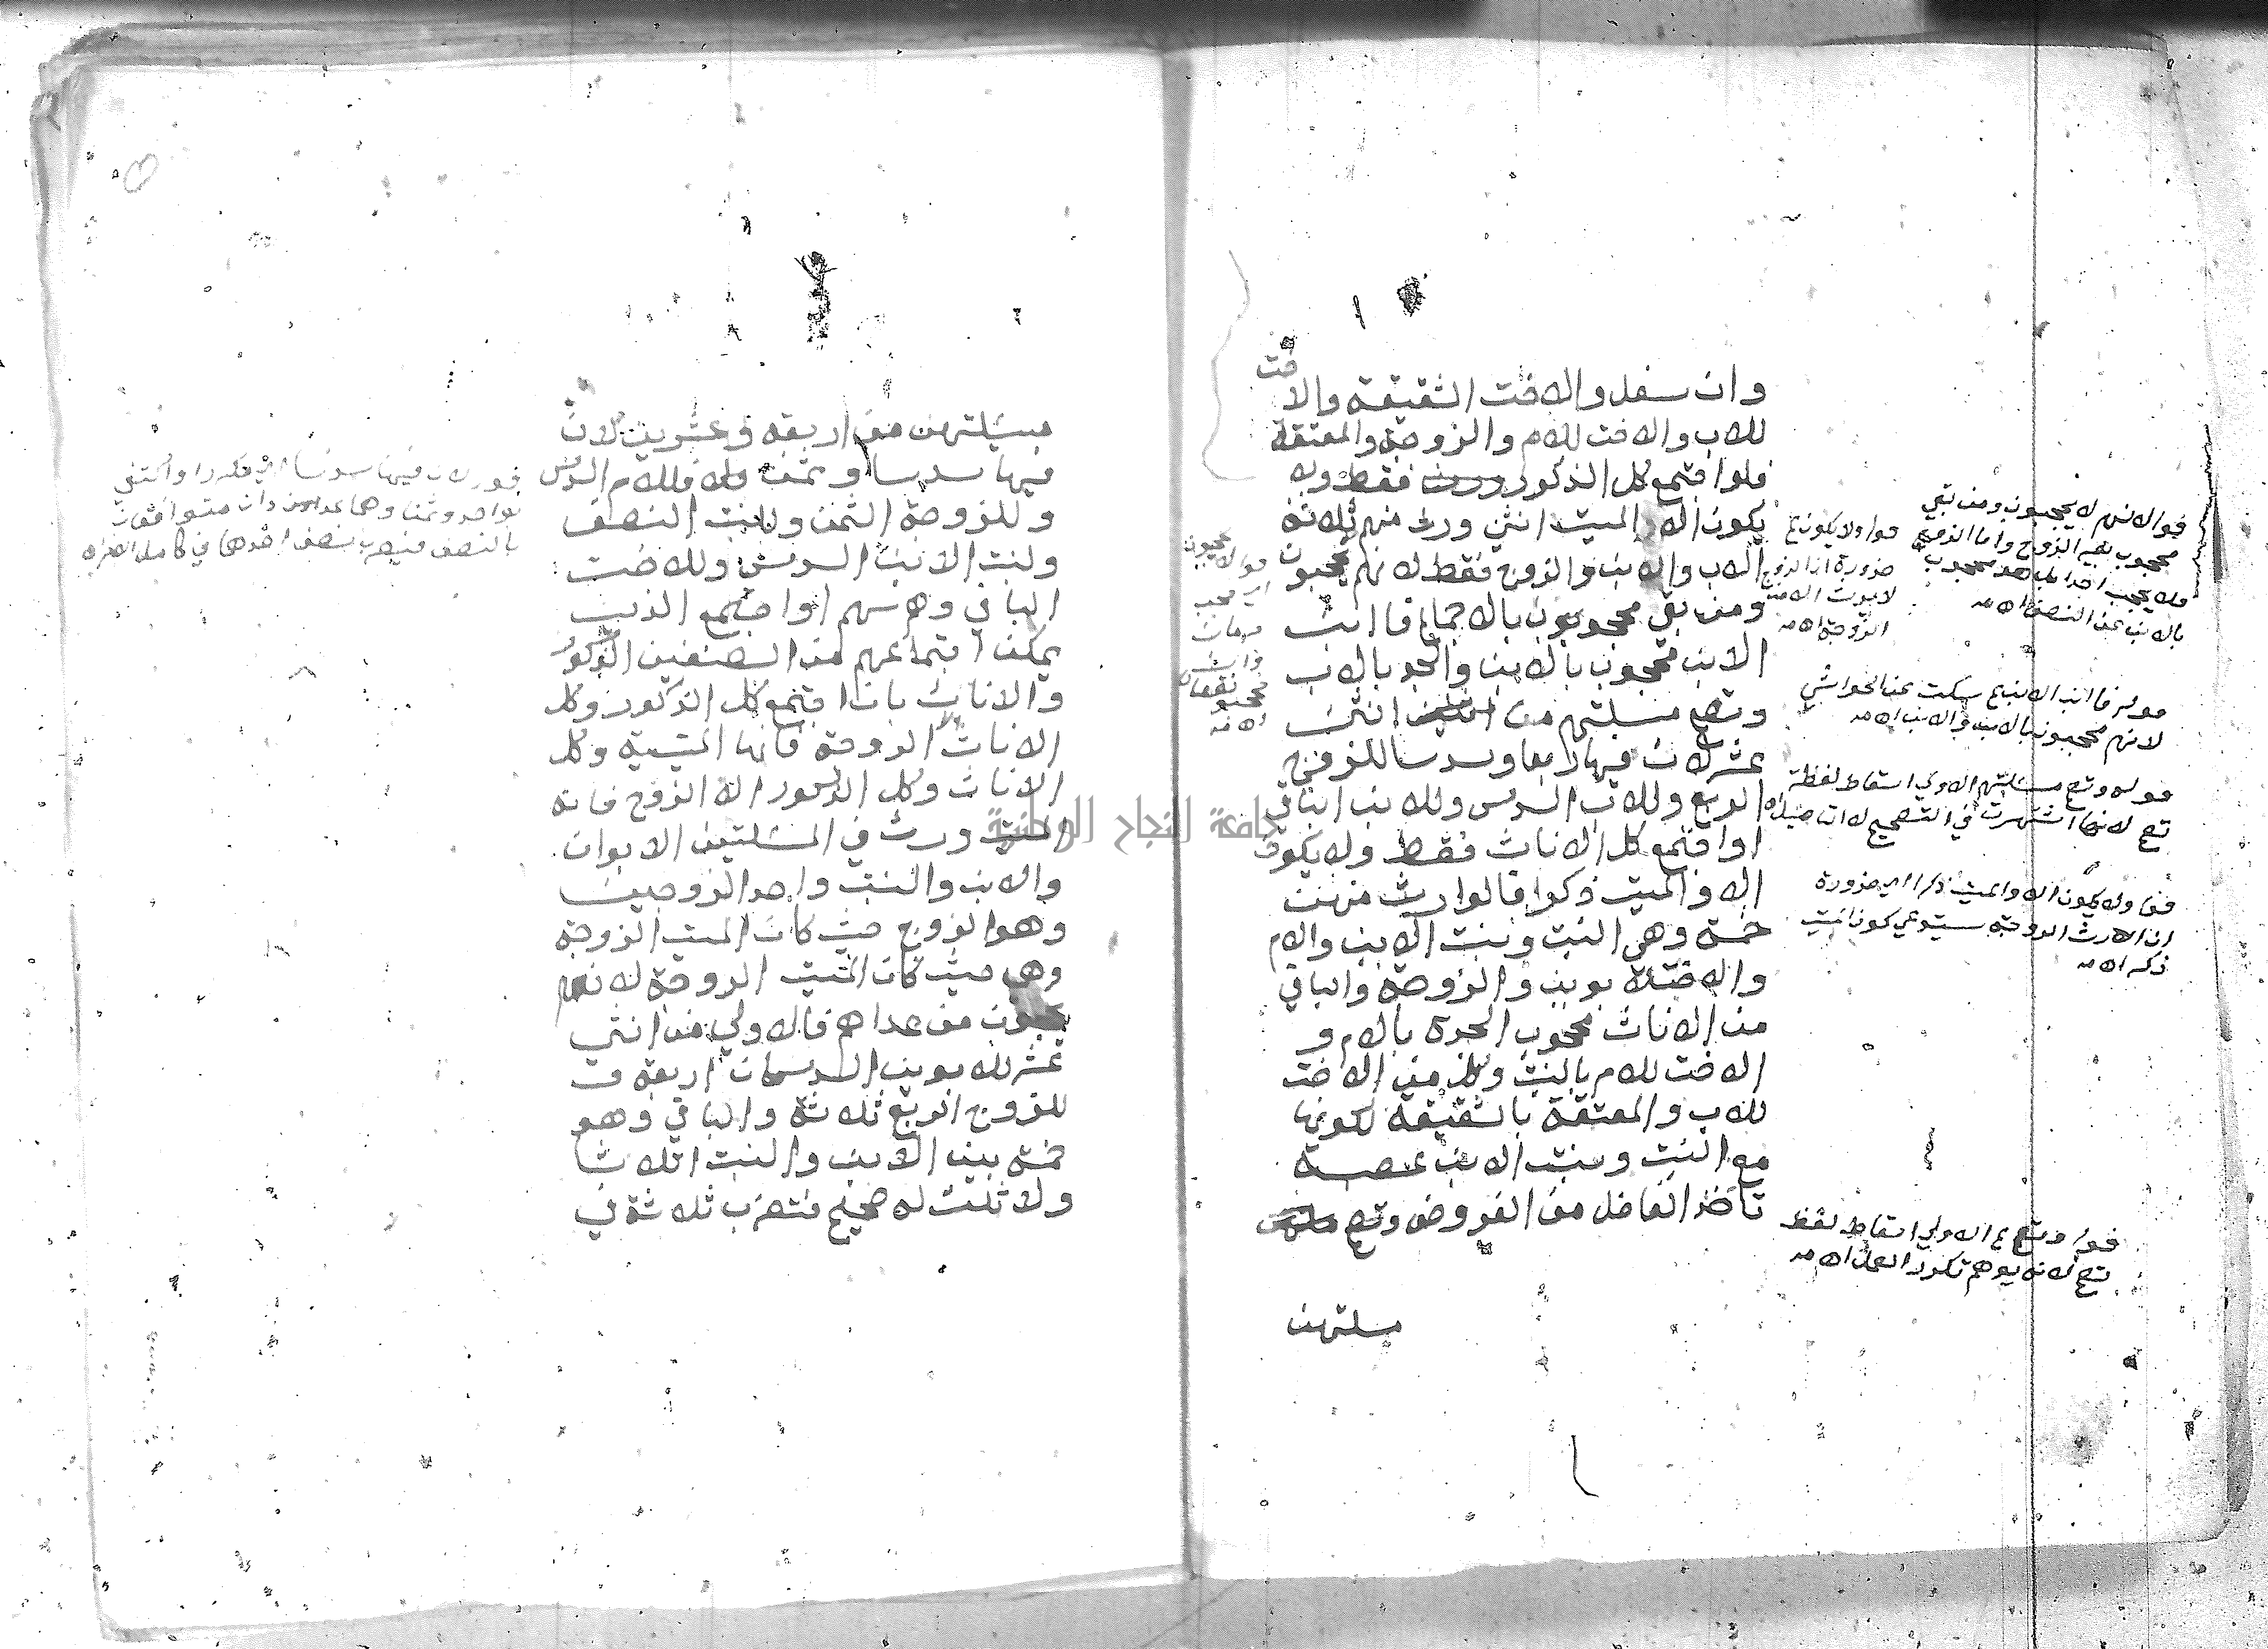 وان سفل والاخت الشقيقة والاخت
للاب والاخت للام والزوجة والمعتقة
فلو اجتمع كل الذكور ورث فقط ولا
يكون الا والميت انثى ورث منهم ثلاثة
الاب والابن والزوج فقط لانهم لا يحجبون
ومن بقي محجوبون بالاجماع فابن
الابن محجوب بالابن والجد بالاب
وتصح مسيلتهم من اثني
عشر لان فيها ربعا وسدسا للزوج
الربع وللاب السدس وللابن الباقي
او اجتمع كل الاناث فقط ولا يكون
الا والميت ذكرا فالوارث منهن
خمسة وهي البنت وبنت الابن والام
والاخت لابوين والزوجة والباقي
من الاناث محجوب الجدة بالام و
الاخت للام بالبنت وكل من الاخت
للاب والمعتقة بالشقيقة لكونها
مع البنت وبنت الابن عصبة
تاخذ الفاضل من الفروض وتصح
مسلتهن
قوله لانهم لا يحجبون ومن بقي
محجوب بغير الزوج واما الزوج
فلا يحجب احدا بل هو محجوب
بالابن عن النصف اه منه
قوله ولا يكون
ضرورة ان الزوج
لا يورث الا من
الزوجة اه منه
قوله فابن الابن سكت عن الحواشي
لانهم محجبون بالابن والاب اه منه
قوله وتصح مسئلتهم الاولى اسقاط لفظة
تصح لانها اشتهرت في التصحيح
قوله ولا يكون الا والميت ذكرا اي ضرورة
ان الارث الزوجة يستدعي كون الميت
ذكر اه منه
قوله وتصح الاولى اسقاط لفظ
تصح لانه يوهم تكرر العمل اه منه
جامعة النجاح الوطنية
مسيلتهن من اربعة وعشرين لان
فيها سدسا وثمنا فللام السدس
وللزوجة الثمن وللبنت النصف
ولبنت الابن السدس وللاخت
الباقي وهو سهم او اجتمع الذين
يمكن اجتماعهم من الصنفين الذكور
والاناث بان اجتمع كل الذكور وكل
الاناث الا الزوجة فانها الميتة وكل
الاناث وكل الذكور الا الزوج فانه
الميت ورث في المسئلتين الابوان
والابن والبنت واحد الزوجين
وهو الزوج حيث كان الميت الزوجة
وهي حيث كان الميت الزوجة لانهم
يحجبون من عداهم فالاولى من اثني
عشر للابوين السدسان اربعة و
للزوج الربع ثلاثة والباقي وهو
خمسة بين الابن والبنت اثلاثا
ولا ثلث له صحيح فتضرب ثلاثة في
قوله لان فيها سدسا
بواحد وثمنا وهما عددان متوافقان
بالنصف فيضرب نصف احدهما في كامل الاخر اه